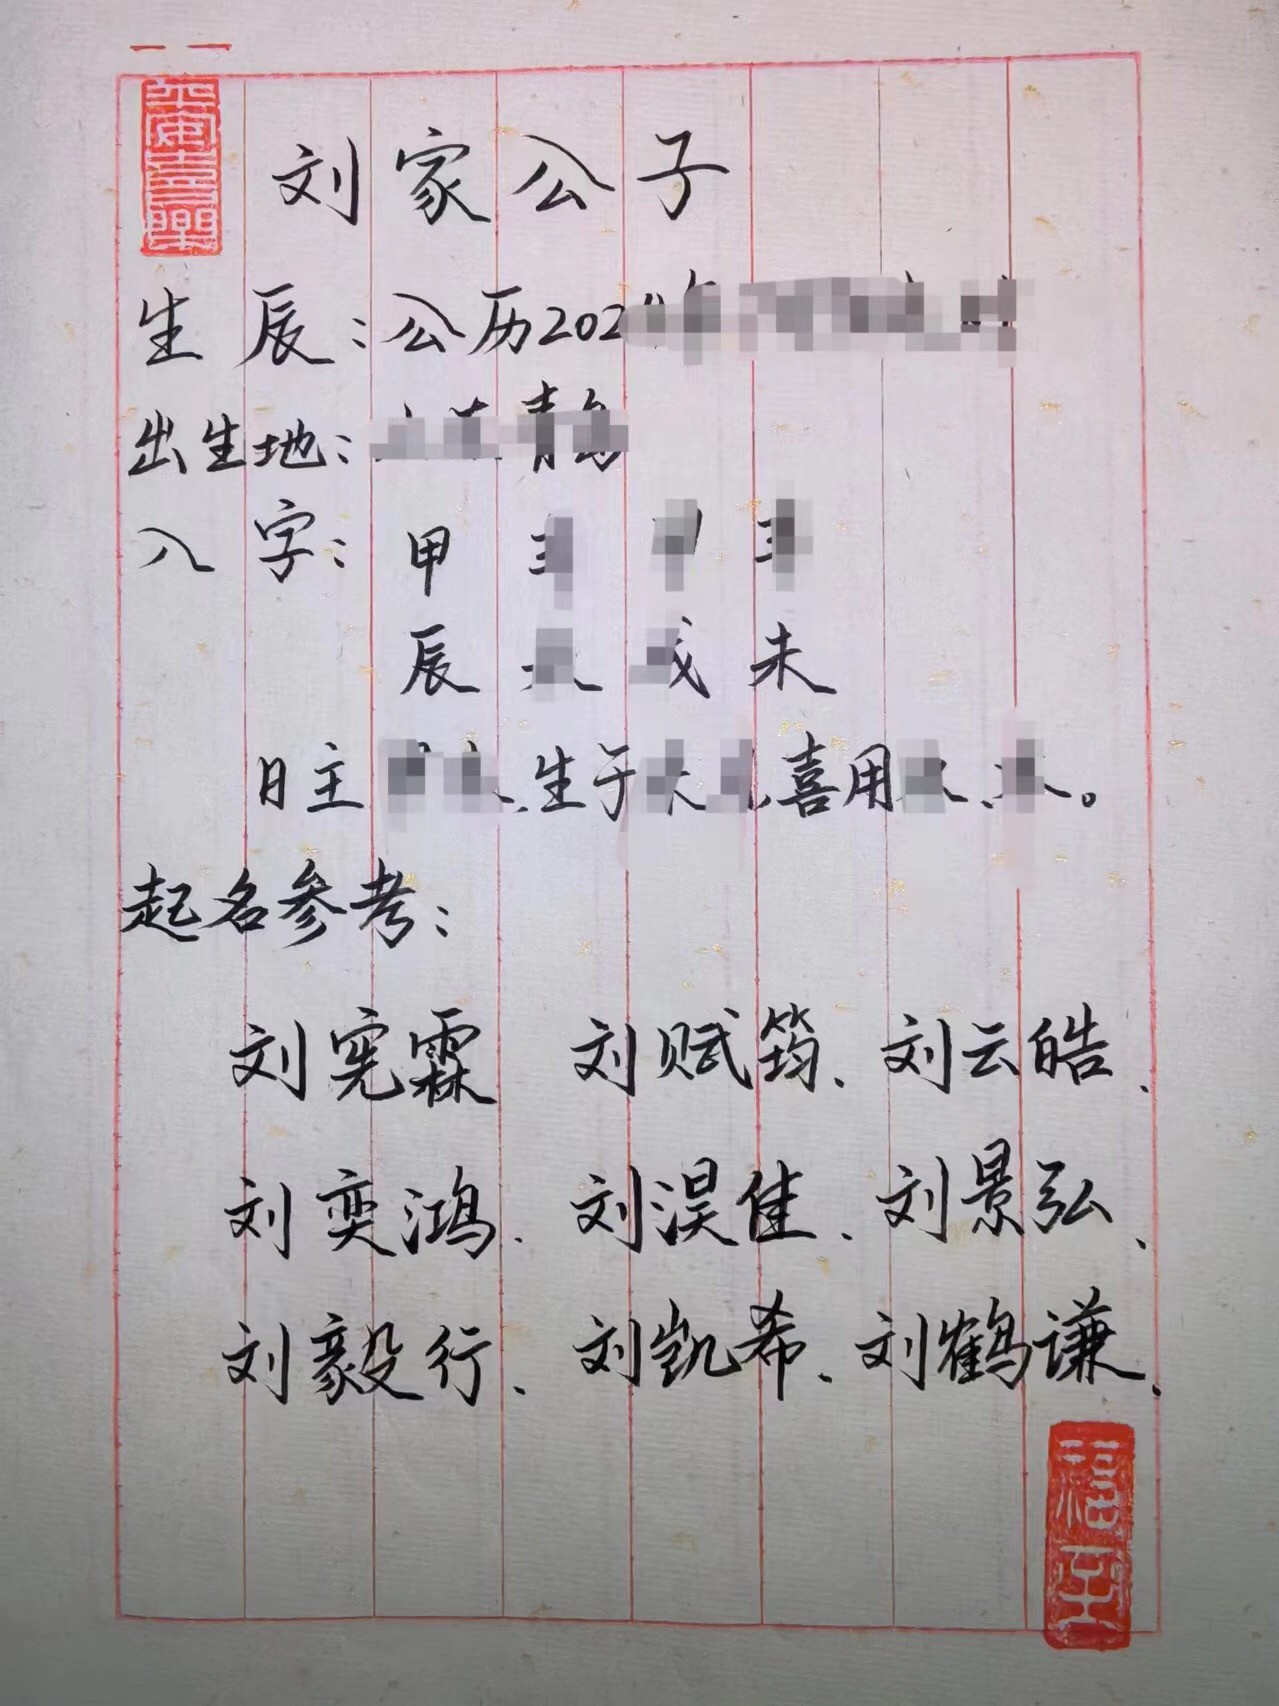 平安喜樂
刘家公子
生辰:公历202
出生地:
八字:甲
辰 戌 未
日主 生于 喜用 。
起名参考:
刘宪霖 刘赋筠、刘云皓、
刘奕鸿、刘淏佳、刘景弘、
刘毅行、刘凯希、刘鹤谦、
福至